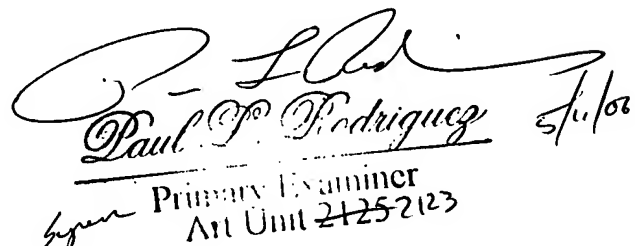 Paul P. Rodriguez 5/11/06
Primary Examiner
Art Unit 2125 2123